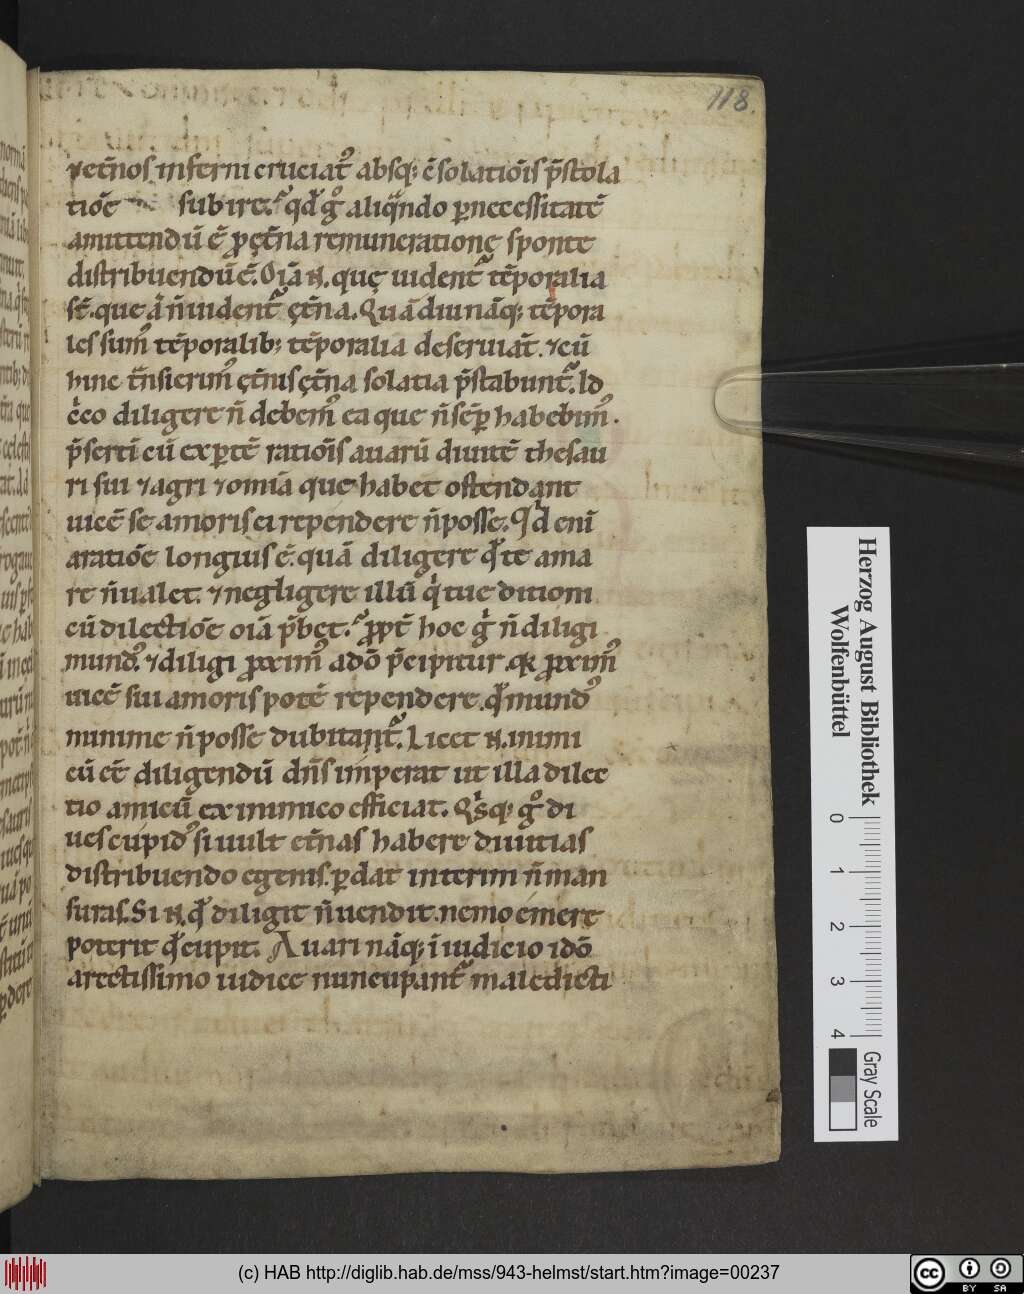 118
⁊ et̄nos inferni cruciat᷒ absq; c̄solatiōis p̄stola
tiōe subire. qd̄ gͦ aliqn̄do ꝑ necessitatē
amittendū ē ꝓ ęt̄na remuneratione sponte
distribuendū ē. Oīa n. quę uident᷑ tēporalia
st̄. que ā n̄ uident᷑ ęt̄na. Quādiu nāq; tēpora
les sum᷒ tēporalib; tēporalia deseruiāt. ⁊ cū
hinc tn̄sierim᷒ ęt̄nis ęt̄na solatia p̄stabunt᷑. Id
c̊co diligere n̄ debem᷒ ea que n̄ sēꝑ habebim᷒.
p̄sertī cū exꝑtē ratiōis auarū diuitē thesau
ri sui ⁊ agri ⁊ omīa que habet ostendant
uicē se amoris ei rependere n̄ posse. Qd̄ enī
a ratiōe longius ē. quā diligere qd̄ te ama
re n̄ ualet. ⁊ negligere illū qͥ tue ditioni
cū dilectiōe oīa p̄bęt. ꝓpt̄ hoc gͥ n̄ diligi
mund᷒ ⁊ diligi ꝓxim᷒ a dō p̄cipitur. qꝛ ꝓxim᷒
uicē sui amoris potē rependere. qd̄ mund᷒
minime n̄ posse dubitant᷑. Licet n. inimi
cū et̄ diligendū dn̄s imperat ut illa dilec
tio amicū ex inimico efficiat. Qͥsq; gͦ di
ues cupid᷒ si uult et̄nas habere diuitias
distribuendo egenis. ꝑdat interim n̄ man
suras. Si n. qd̄ diligit n̄ uendit. nemo emere
poterit qd̄ cupit. Auari nāq; ī iudicio idō
a rectissimo iudice nuncupant᷑ maledicti
Herzog August Bibliothek
Wolfenbüttel
0 1 2 3 4
Gray Scale
(c) HAB http://diglib.hab.de/mss/943-helmst/start.htm?image=00237
cc BY SA